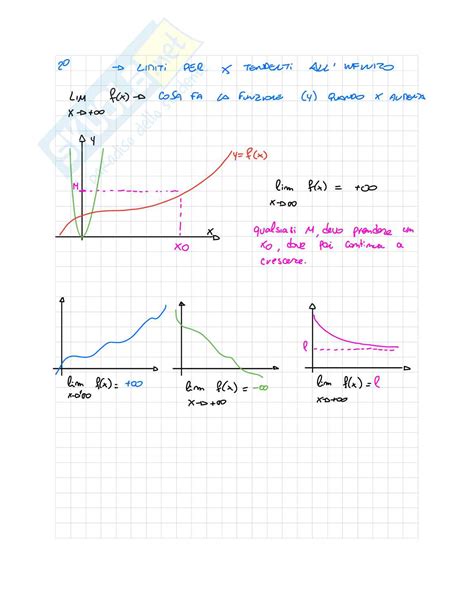 20 → LIMITI PER X TENDENTI ALL'INFINITO
LIM f(x) → COSA FA LA FUNZIONE (Y) QUANDO X AUMENTA
X→+∞
Y
y=f(x)
M
X
X0
lim f(x) = +∞
X→∞
qualsiasi M, devo prendere un
X0, dove poi continua a
crescere.
lim f(x) = +∞
X→+∞
lim f(x) = -∞
X→+∞
l
lim f(x) = l
X→+∞